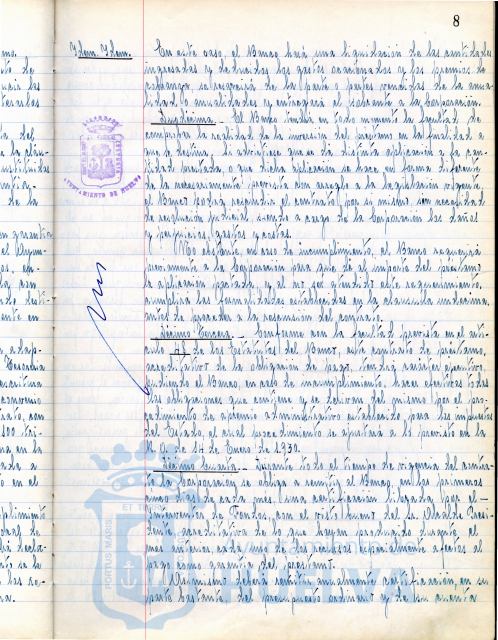 8
Idem. Idem.
En este caso, el Banco hará una liquidación de las cantidades
ingresadas y deducidos los gastos ocasionados y los premios de
cobranza se reintegrará de la parte o partes vencidas de la anua-
lidad o anualidades y entregará el sobrante a la Corporación.
Duodécima.- El Banco tendrá en todo momento la facultad de
comprobar la realidad de la inversión del préstamo en la finalidad a
que se destina. Si advirtiese que se da distinta aplicación a la can-
tidad prestada, o que dicha aplicación se hace en forma diferente
de la necesariamente prevista con arreglo a la legislación vigente
el Banco podrá rescindir el contrato, por sí mismo sin necesidad
de resolución judicial, siendo a cargo de la Corporación los daños
y perjuicios, gastos y costas.
No obstante, en caso de incumplimiento, el Banco requerirá
previamente a la Corporación para que dé al importe del préstamo
la aplicación pactada, y al no ser atendido este requerimiento,
cumplirá las formalidades establecidas en la cláusula undécima,
antes de proceder a la rescisión del contrato.
Décimo Tercera.- Conforme con la facultad prevista en el artí-
culo 4º de los Estatutos del Banco, este contrato de préstamo,
acreditativo de la obligación de pago, tendrá carácter ejecutivo,
pudiendo el Banco, en caso de incumplimiento hacer efectivas todas
las obligaciones que contiene y se derivan del mismo por el pro-
cedimiento de apremio administrativo establecido para los impuestos
del Estado, el cual procedimiento se ajustará a lo previsto en la
R. O. de 14 de Enero de 1930.
Décimo Cuarta.- Durante todo el tiempo de vigencia del contra-
to la Corporación se obliga a remitir al Banco, en los primeros
cinco días de cada mes, una certificación librada por el
Interventor de Fondos, con el visto bueno del Sr. Alcalde Presi-
dente acreditativa de lo que hayan producido durante el
mes anterior cada uno de los recursos especialmente afectos al
pago como garantía del préstamo.
Asimismo deberá remitir anualmente certificación, en su
parte bastante, del presupuesto ordinario y de su cuenta
AYUNTAMIENTO DE HUELVA
PORTUS MARIS
HUELVA